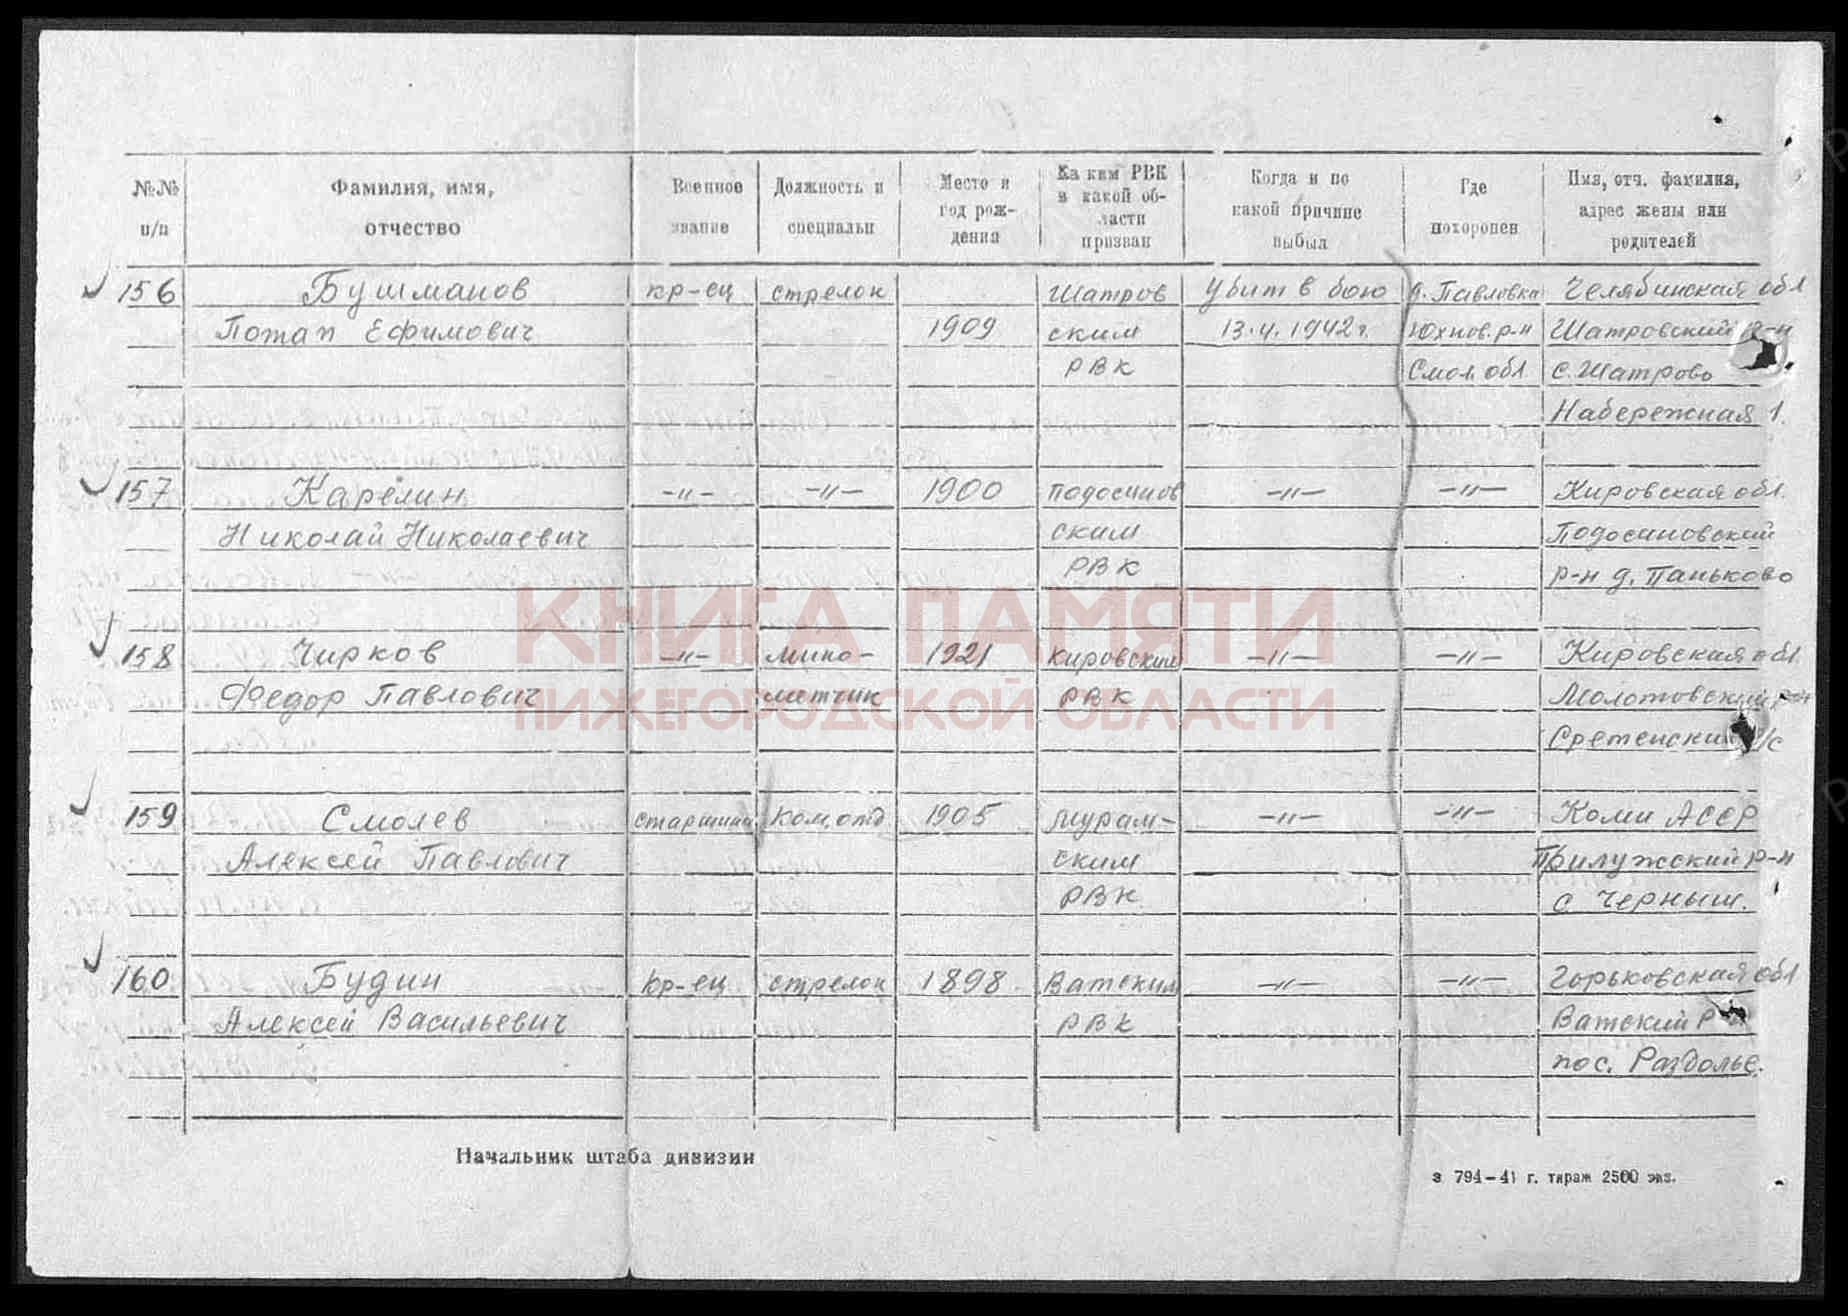 №№ п/п
Фамилия, имя, отчество
Военное звание
Должность и специальн
Место и год рождения
Каким РВК и какой области призван
Когда и по какой причине выбыл
Где похоронен
Имя, отч. фамилия, адрес жены или родителей
156 Бушманов кр-ец стрелок Шатров убит в бою д. Павловка Челябинская обл
Потап Ефимович 1909 ским 13.4.1942 г. Юхнов. р-н Шатровский р-н
РВК Смол. обл с. Шатрово
Набережная 1.
157 Карелин -"- -"- 1900 Подосинов -"- -"- Кировская обл.
Николай Николаевич ским Подосиновский
РВК р-н д. Паньково
КНИГА ПАМЯТИ
158 Чирков -"- мино- 1921 Кировский -"- -"- Кировская обл
Федор Павлович метчик РВК Молотовский р-н
НИЖЕГОРОДСКОЙ ОБЛАСТИ
Сретенский с/с
159 Смолев старшина ком. отд 1905 Мурам- -"- -"- Коми АССР
Алексей Павлович ским Прилужский р-н
РВК с Черныш.
160 Будин кр-ец стрелок 1898 Ватским -"- -"- Горьковская обл
Алексей Васильевич РВК Ватский р-н
пос. Раздолье.
Начальник штаба дивизии
з 794—41 г. тираж 2500 экз.